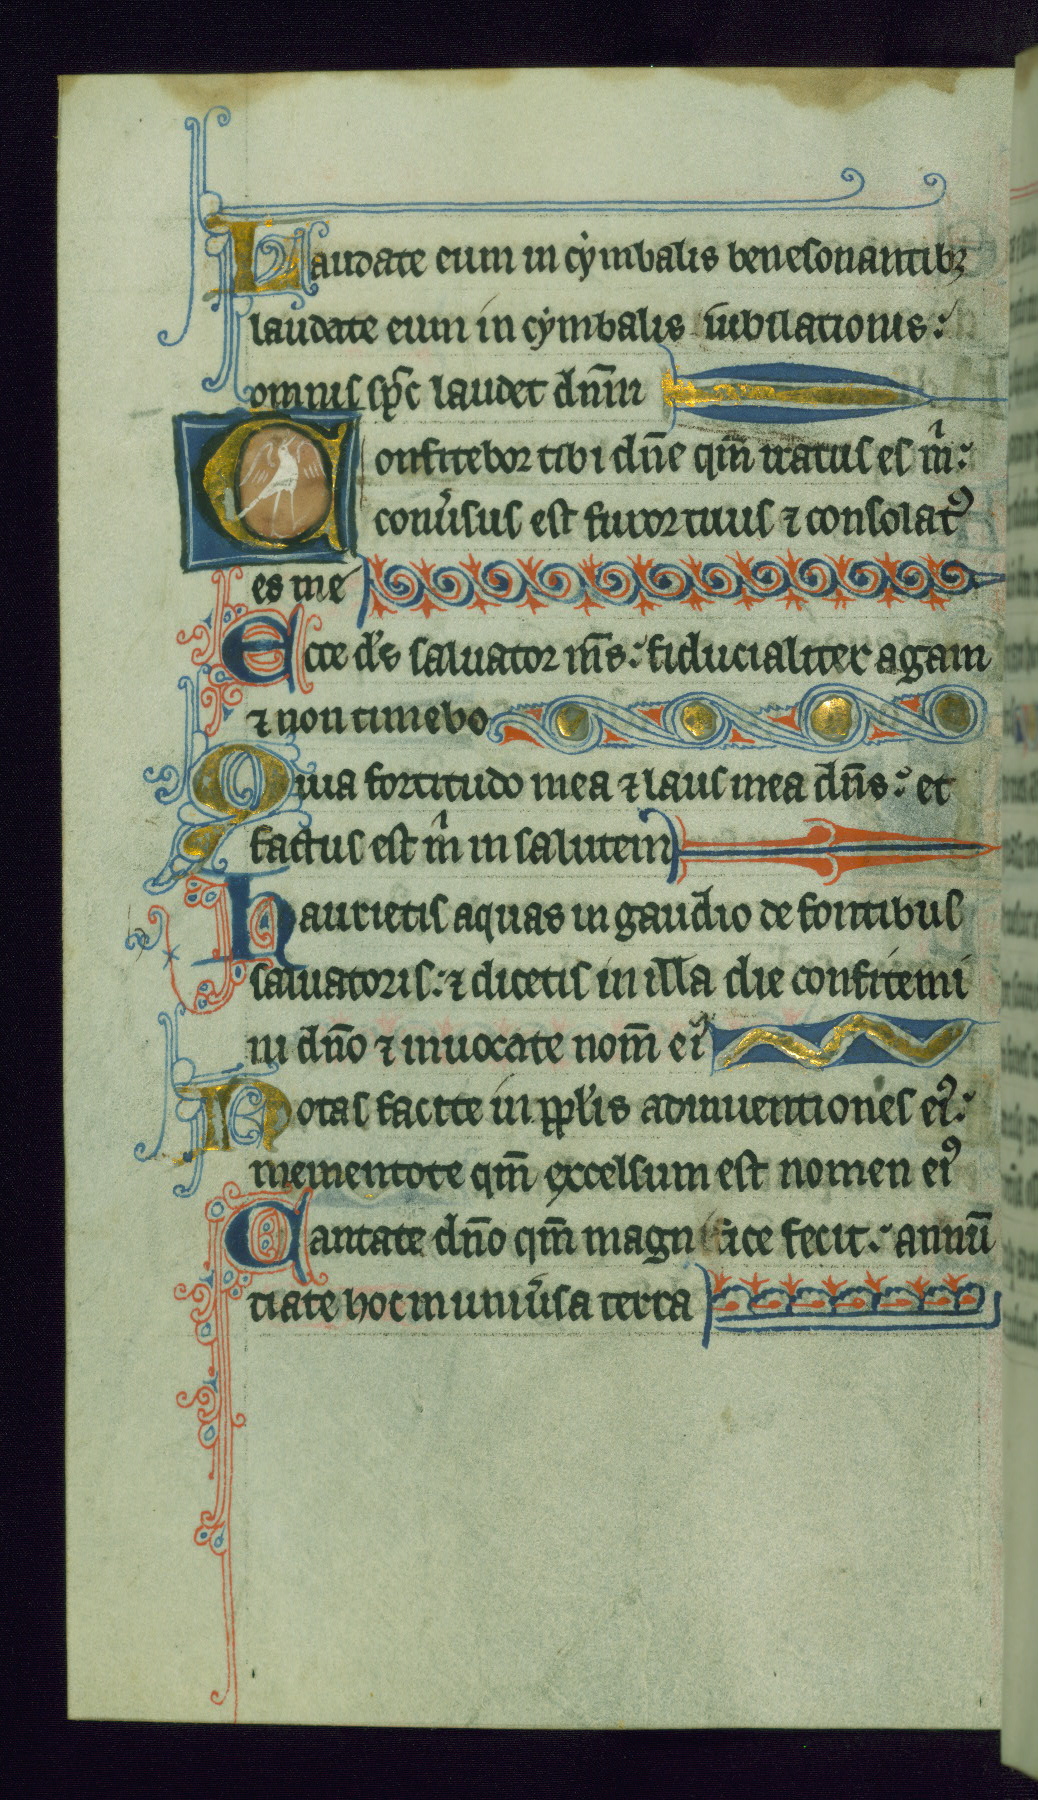 Laudate eum in cymbalis benesonantibꝫ
laudate eum in cymbalis iubilationis:
omnis sp̄c laudet dn̄m
Confitebor tibi dn̄e qm̄ iratus es m̄:
conůsus est furor tuus ⁊ consolatꝰ
es me
Ecce ds̄ saluator ms̄: fiducialiter agam
⁊ non timebo
Quia fortitudo mea ⁊ laus mea dn̄s: et
factus est m̄ in salutem
Haurietis aquas in gaudio de fontibus
saluatoris: ⁊ dicetis in illa die confitemi
ni dn̄o ⁊ inuocate nom̄ eiꝰ
Notas facite in pp̄lis adinuentiones eiꝰ:
mementote qm̄ excelsum est nomen eiꝰ
Cantate dn̄o qm̄ magnifice fecit: annū
tiate hoc in uniůsa terra